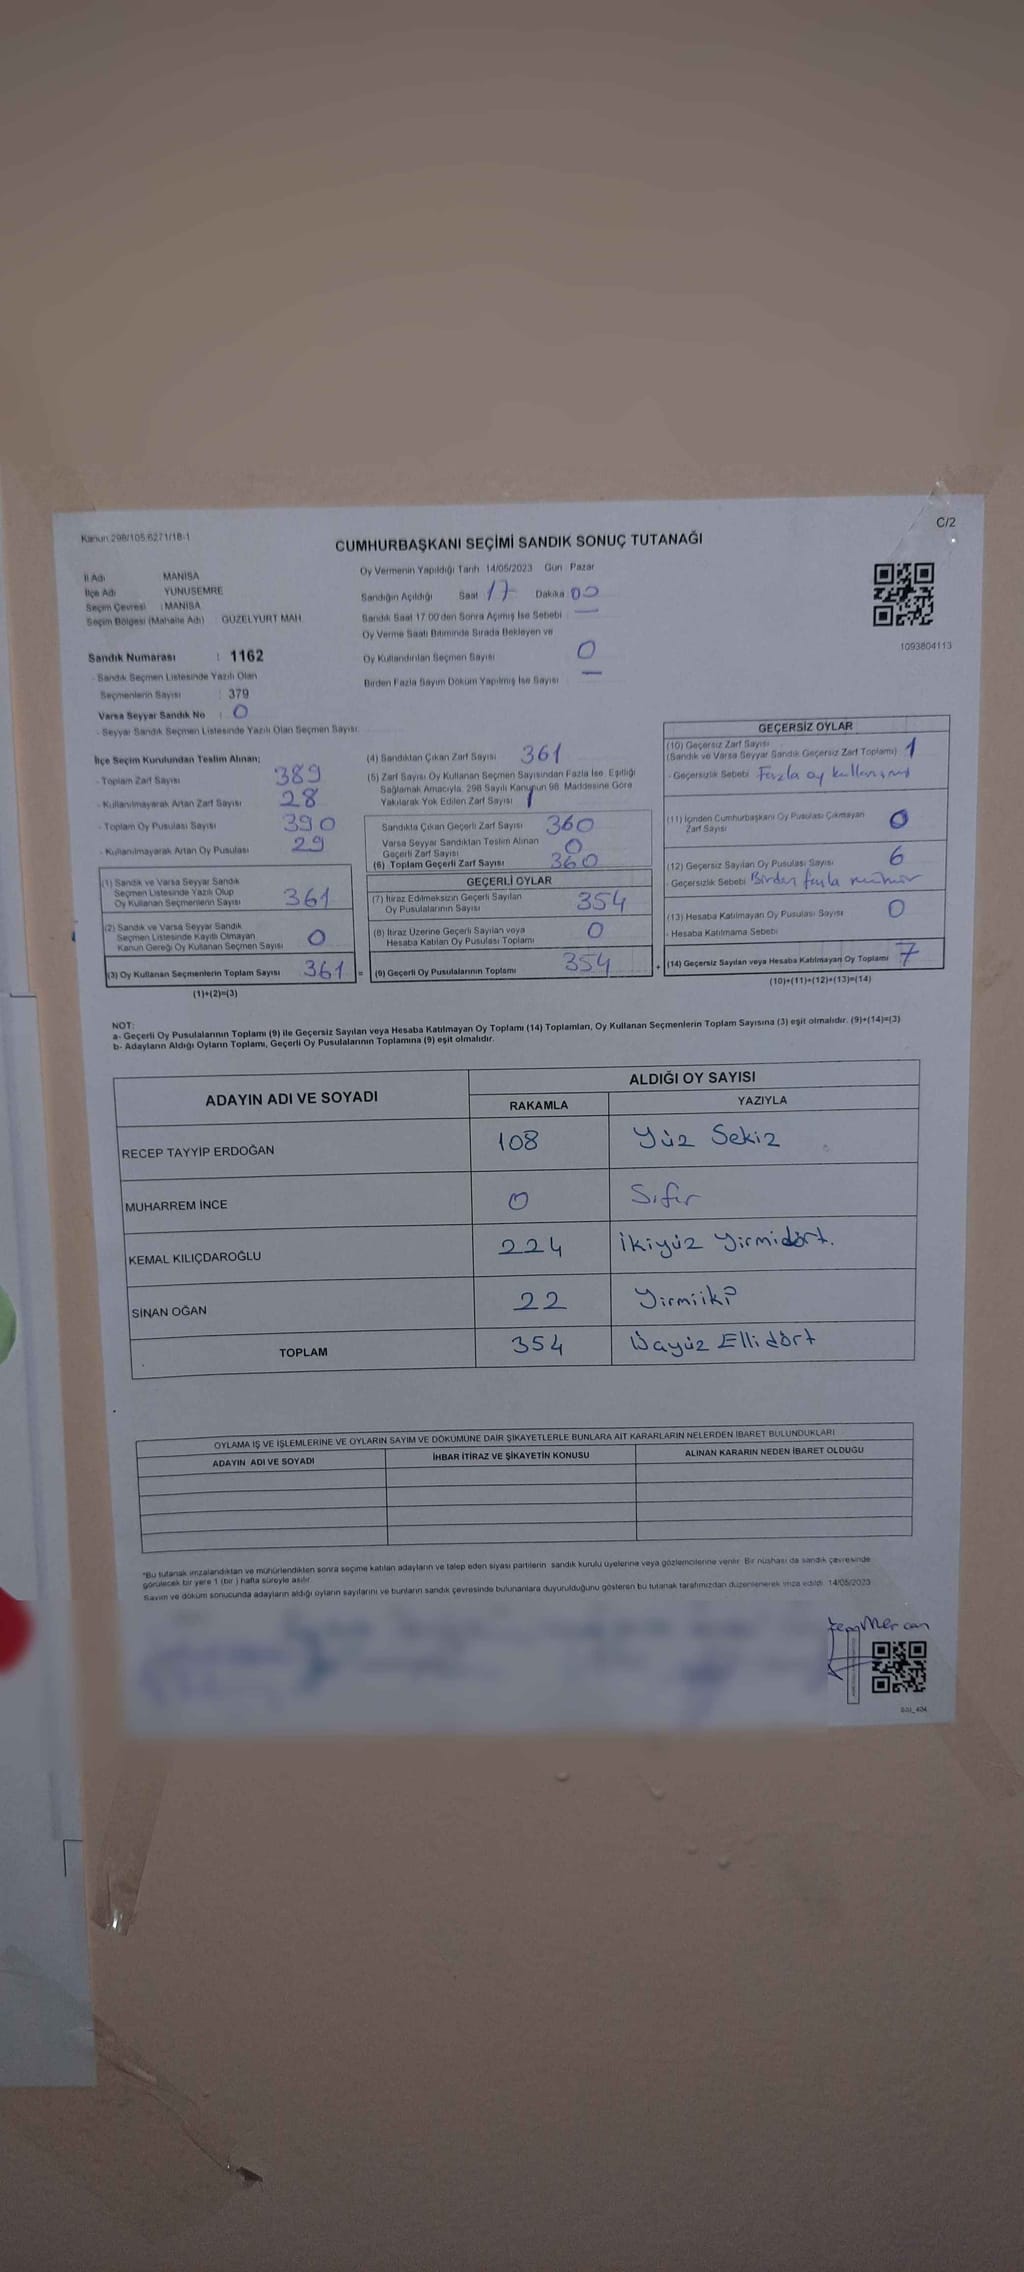 Kanun 298/105 6271/18-1
C/2
CUMHURBAŞKANI SEÇİMİ SANDIK SONUÇ TUTANAĞI
İl Adı MANİSA
İlçe Adı YUNUSEMRE
Seçim Çevresi : MANİSA
Seçim Bölgesi (Mahalle Adı) GÜZELYURT MAH.
Sandık Numarası : 1162
- Sandık Seçmen Listesinde Yazılı Olan
Seçmenlerin Sayısı : 379
Varsa Seyyar Sandık No : 0
- Seyyar Sandık Seçmen Listesinde Yazılı Olan Seçmen Sayısı:
Oy Vermenin Yapıldığı Tarih 14/05/2023 Gün Pazar
Sandığın Açıldığı Saat 17 Dakika 00
Sandık Saat 17:00'den Sonra Açımış İse Sebebi : —
Oy Verme Saati Bitiminde Sırada Bekleyen ve
Oy Kullandırılan Seçmen Sayısı 0
Birden Fazla Sayım Döküm Yapılmış İse Sayısı : —
1093804113
İlçe Seçim Kurulundan Teslim Alınan;
- Toplam Zarf Sayısı 389
- Kullanılmayarak Artan Zarf Sayısı 28
- Toplam Oy Pusulası Sayısı 390
- Kullanılmayarak Artan Oy Pusulası 29
(1) Sandık ve Varsa Seyyar Sandık
Seçmen Listesinde Yazılı Olup
Oy Kullanan Seçmenlerin Sayısı 361
(2) Sandık ve Varsa Seyyar Sandık
Seçmen Listesinde Kayıtlı Olmayan
Kanun Gereği Oy Kullanan Seçmen Sayısı 0
(3) Oy Kullanan Seçmenlerin Toplam Sayısı 361 =
(1)+(2)=(3)
(4) Sandıktan Çıkan Zarf Sayısı 361
(5) Zarf Sayısı Oy Kullanan Seçmen Sayısından Fazla İse, Eşitliği
Sağlamak Amacıyla, 298 Sayılı Kanunun 98. Maddesine Göre
Yakılarak Yok Edilen Zarf Sayısı 1
Sandıkta Çıkan Geçerli Zarf Sayısı 360
Varsa Seyyar Sandıktan Teslim Alınan
Geçerli Zarf Sayısı 0
(6) Toplam Geçerli Zarf Sayısı 360
GEÇERLİ OYLAR
(7) İtiraz Edilmeksizin Geçerli Sayılan
Oy Pusulalarının Sayısı 354
(8) İtiraz Üzerine Geçerli Sayılan veya
Hesaba Katılan Oy Pusulası Toplamı 0
(9) Geçerli Oy Pusulalarının Toplamı 354 +
GEÇERSİZ OYLAR
(10) Geçersiz Zarf Sayısı
(Sandık ve Varsa Seyyar Sandık Geçersiz Zarf Toplamı) 1
- Geçersizlik Sebebi Fazla oy kullanımı
(11) İçinden Cumhurbaşkanı Oy Pusulası Çıkmayan
Zarf Sayısı 0
(12) Geçersiz Sayılan Oy Pusulası Sayısı 6
- Geçersizlik Sebebi Birden fazla mühür
(13) Hesaba Katılmayan Oy Pusulası Sayısı 0
- Hesaba Katılmama Sebebi
(14) Geçersiz Sayılan veya Hesaba Katılmayan Oy Toplamı 7
(10)+(11)+(12)+(13)=(14)
NOT:
a- Geçerli Oy Pusulalarının Toplamı (9) ile Geçersiz Sayılan veya Hesaba Katılmayan Oy Toplamı (14) Toplamları, Oy Kullanan Seçmenlerin Toplam Sayısına (3) eşit olmalıdır. (9)+(14)=(3)
b- Adayların Aldığı Oyların Toplamı, Geçerli Oy Pusulalarının Toplamına (9) eşit olmalıdır.
ADAYIN ADI VE SOYADI
ALDIĞI OY SAYISI
RAKAMLA YAZIYLA
RECEP TAYYİP ERDOĞAN 108 Yüz Sekiz
MUHARREM İNCE 0 Sıfır
KEMAL KILIÇDAROĞLU 224 İkiyüz Yirmidört.
SİNAN OĞAN 22 Yirmiiki
TOPLAM 354 Üçyüz Ellidört
OYLAMA İŞ VE İŞLEMLERİNE VE OYLARIN SAYIM VE DÖKÜMÜNE DAİR ŞİKAYETLERLE BUNLARA AİT KARARLARIN NELERDEN İBARET BULUNDUKLARI
ADAYIN ADI VE SOYADI İHBAR İTİRAZ VE ŞİKAYETİN KONUSU ALINAN KARARIN NEDEN İBARET OLDUĞU
*Bu tutanak imzalandıktan ve mühürlendikten sonra seçime katılan adayların ve talep eden siyasi partilerin sandık kurulu üyelerine veya gözlemcilerine verilir. Bir nüshası da sandık çevresinde
görülecek bir yere 1 (bir) hafta süreyle asılır.
Sayım ve döküm sonucunda adayların aldığı oyların sayılarını ve bunların sandık çevresinde bulunanlara duyurulduğunu gösteren bu tutanak tarafımızdan düzenlenerek imza edildi. 14/05/2023
Mercan